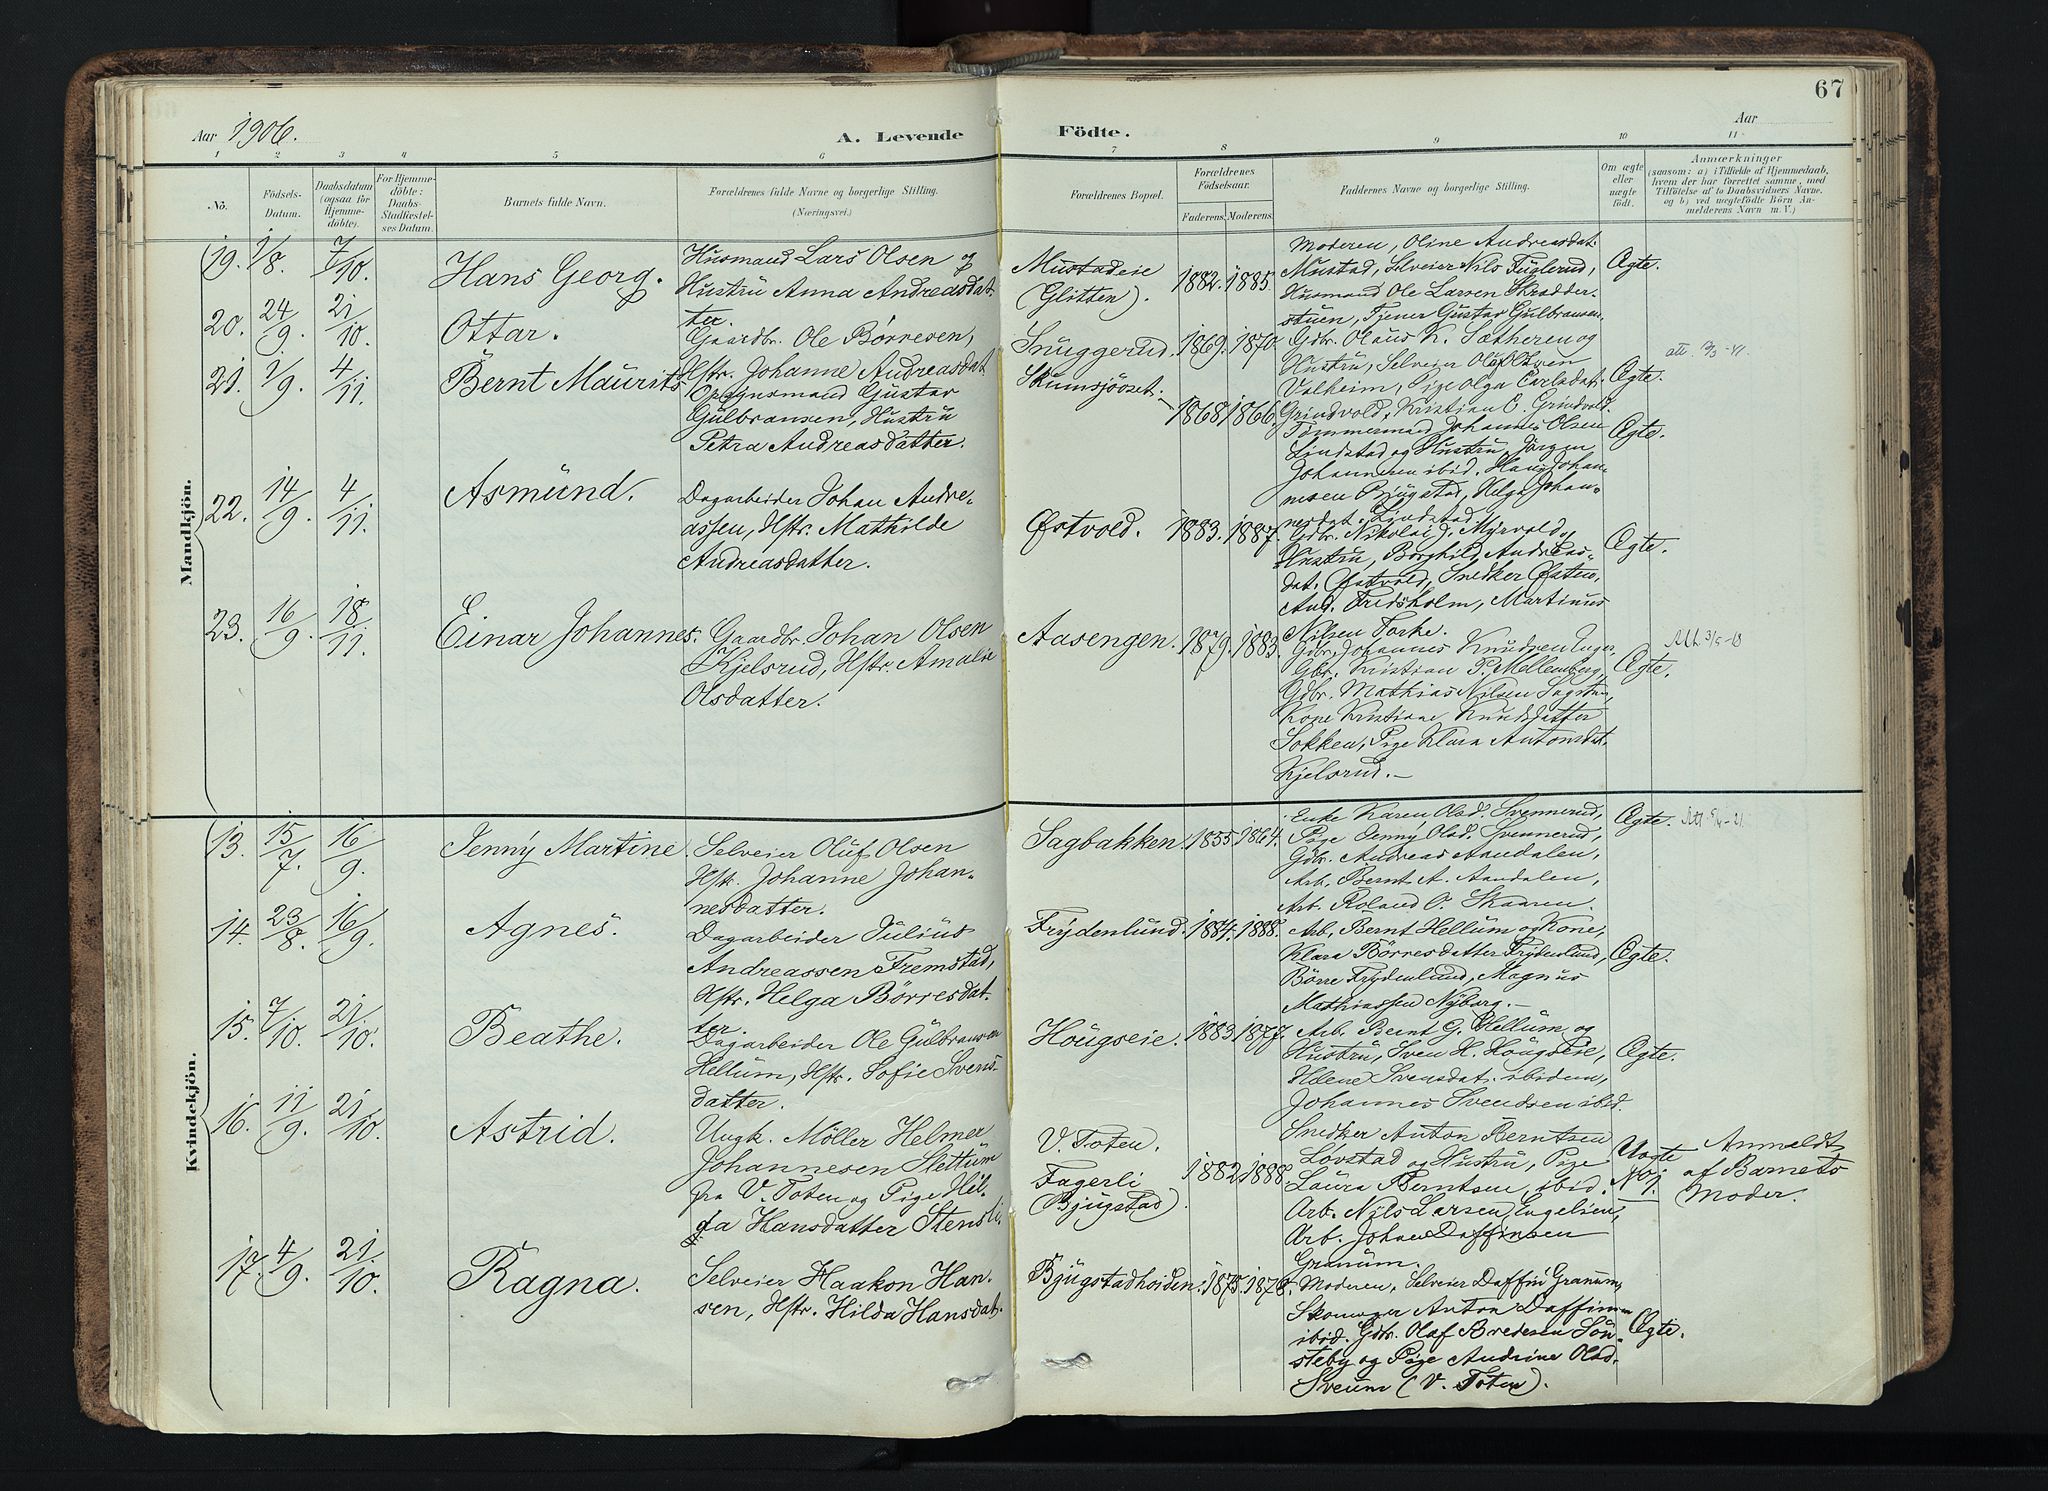 67
Aar 1906.
A. Levende Födte.
Aar
1 2 3 4 5 6 7 8 9 10 11
No.
Födsels-Datum.
Daabsdatum (ogsaa för Hjemme-döbte).
For Hjemme-döbte: Daabs-Stadfæstel-ses Datum.
Barnets fulde Navn.
Forældrenes fulde Navne og borgerlige Stilling.
(Næringsvei.)
Forældrenes Bopæl.
Forældrenes Födselsaar.
Faderens. Moderens.
Faddernes Navne og borgerlige Stilling.
Om ægte eller uægte födt.
Anmærkninger
(saasom: a) i Tilfælde af Hjemmedaab, hvem der har forrettet samme, med Tilföielse af to Daabsvidners Navne. og b) ved uægtefödte Börn An-melderens Navn m. V.)
Mandkjön.
19. 1/8. 7/10. Hans Georg.
Husmand Lars Olsen og
Hustru Anna Andreasdat-
ter.
Mustadeie
(Glitten).
1882. 1885.
Moderen, Oline Andreasdat.
Mustad, Selveier Nils Fuglerud,
Husmand Ole Larsen Skrædder-
stuen, Tjener Gustav Gulbransen.
Ægte.
20. 24/9. 21/10. Ottar.
Gaardbr. Ole Børresen,
Hstr. Johanne Andreasdat
Snuggerud.
1869. 1870
Gdbr. Olaus K. Sætheren og
Hustru, Selveier Olaf Olsen
Valheim, Pige Olga Carlsdat.
Grindvold, Kristian C. Grindvold.
Ægte.
21. 1/9. 4/11. Bernt Maurits
Opsynsmand Gustav
Gulbransen, Hustru
Petra Andreasdatter.
Skumsjöset.
1868 1866.
Tømmermand Johannes Olsen
Lindstad og Hustru, Jørgen
Johannesen ibid. Hans Johan-
nesen Bjugstad, Helga Johan-
nesdat. Lindstad.
Ægte.
22. 14/9. 4/11. Asmund.
Dagarbeider Johan Andre-
assen, Hstr. Mathilde
Andreasdatter.
Østvold.
1883. 1887.
Gdbr. Nikolai J. Myrvold og
Hustru, Borghild Andreas-
dat. Østvold, Snedker Østen
Aug. Fredsholm, Martinus
Nilsen Torke.
Ægte.
23. 16/9. 18/11. Einar Johannes.
Gaardbr. Johan Olsen
Kjelsrud, Hstr. Amalie
Olsdatter.
Aasengen.
1879. 1883.
Gdbr. Johannes Knudsen
Gbr. Kristian P. Mellemberg,
Gdbr. Mathias Nilsen Sagstu,
Kone Kristiane Knudsdatter
Sokken, Pige Klara Antonsdat.
Kjelsrud.-
Ægte.
Att. 3/5-18
Kvindekjön.
13. 15/7. 16/9. Jenny Martine
Selveier Oluf Olsen
Hstr. Johanne Johan-
nesdatter.
Sagbakken.
1855 1864.
Enke Karen Olsd. Svennerud,
Pige Jenny Olsd. Svennerud,
Gdbr. Andreas Aandalen,
Arb. Bernt A. Aandalen,
Arb. Roland O. Skaaren.
Ægte.
14. 23/8. 16/9. Agnes.
Dagarbeider Julius
Andreassen Fremstad,
Hstr. Helga Börresdat-
ter.
Frydenlund.
1884. 1888.
Arb. Bernt Hellum og Kone,
Klara Börresdatter Frydenlund,
Börre Frydenlund, Magnus
Mathiassen Nyborg.-
Ægte.
15. 7/10. 21/10. Beathe.
Dagarbeider Ole Gulbransen
Hellum, Hstr. Sofie Svens-
datter.
Hougseie.
1883 1877.
Arb. Bernt G. Hellum og
Hustru, Sven H. Hougseie,
Helene Svensdat. ibidem,
Johannes Svendsen ibid.
Ægte.
16. 11/9. 21/10. Astrid.
Ungk. Möller Helmer
Johannesen Slettum
fra V. Toten og Pige Hel-
ga Hansdatter Stensli.
V. Toten.
Fagerli
(Bjugstad).
1882 1888.
Snedker Anton Berntsen
Lövstad og Hustru, Pige
Laura Berntsen, ibid.
Arb. Nils Larsen Engelien,
Arb. Johan Daffinsen
Granum.
Uægte
No 1.
Anmeldt
af Barnets
Moder.
17. 4/9. 21/10. Ragna.
Selveier Haakon Han-
sen, Hstr. Hilda Hansdat.
Bjugstadhoiden.
1875. 1878.
Moderen, Selveier Daffin Granum,
Skomager Anton Daffinsen
ibid. Gdbr. Olaf Bredesen Sön-
steby og Pige Andrine Olsd.
Sveum (V. Toten).
Ægte.